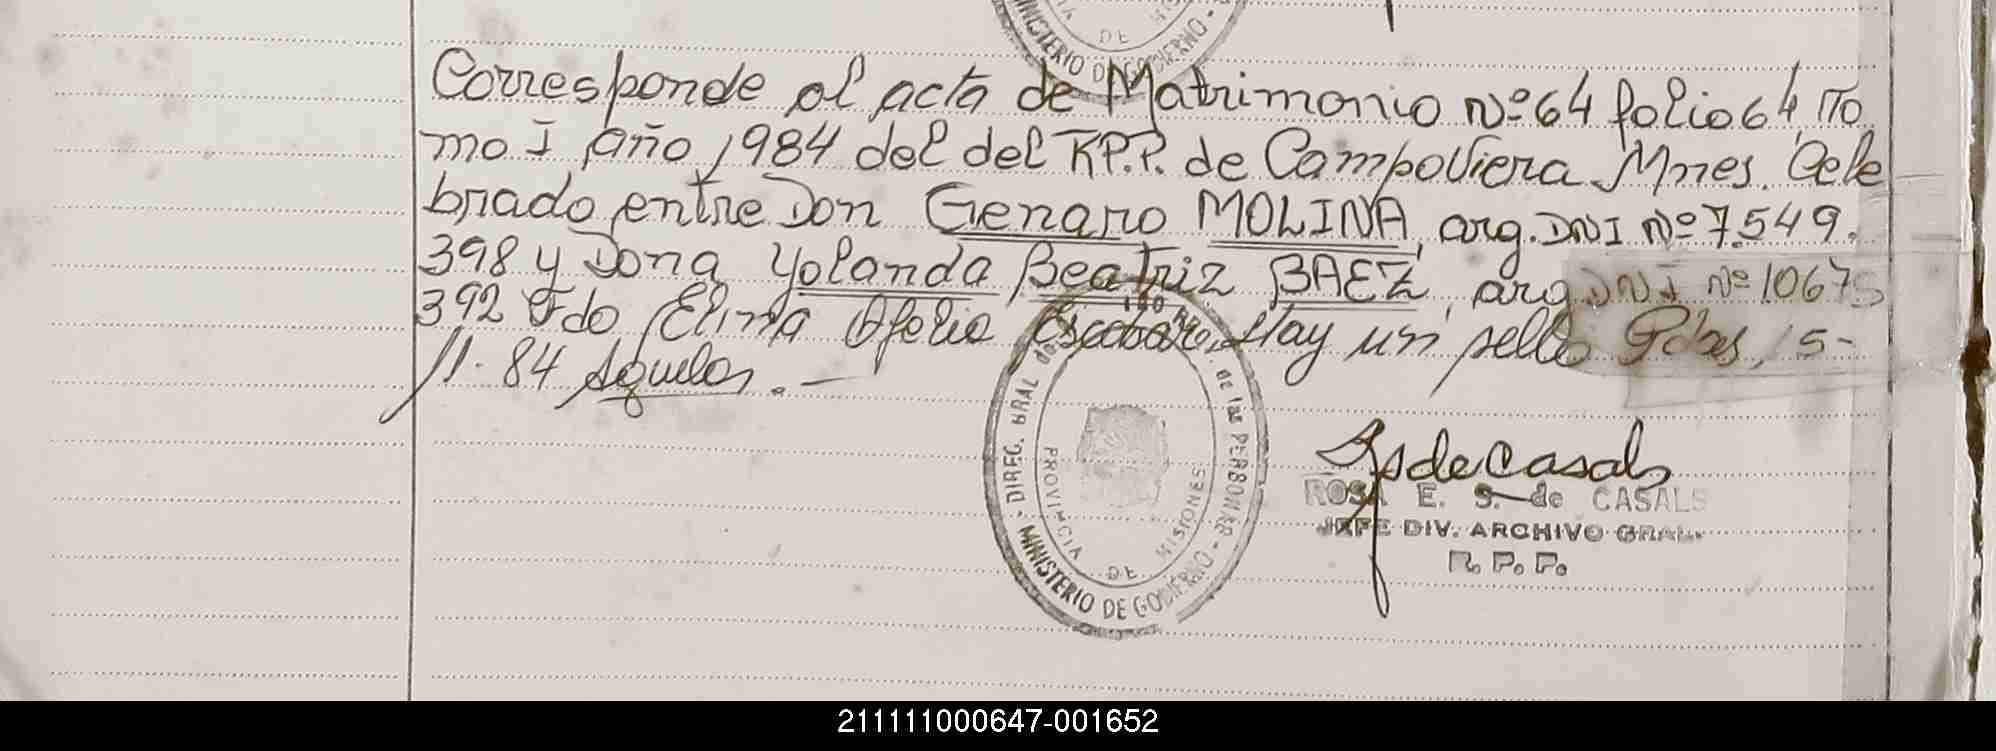 MINISTERIO DE GOBIERNO -
DE
Corresponde al acta de Matrimonio Nº 64 folio 64 To
mo I Año 1984 del del R.P.P. de Campo Viera Mnes. Cele
brado entre Don Genaro MOLINA, arg. DNI Nº 7.549.
398 y Dona Yolanda Beatriz BAEZ, arg. DNI Nº 10675
392 Fdo Elma Ofelia Escobar, Hay un sello Pdas, 15-
11-84 .-
- DIREC. GRAL de las PERSONAS -
MINISTERIO DE GOBIERNO
PROVINCIA DE MISIONES
ROSA E. S. de CASALS
JEFE DIV. ARCHIVO GRAL.
R. P. P.
211111000647-001652